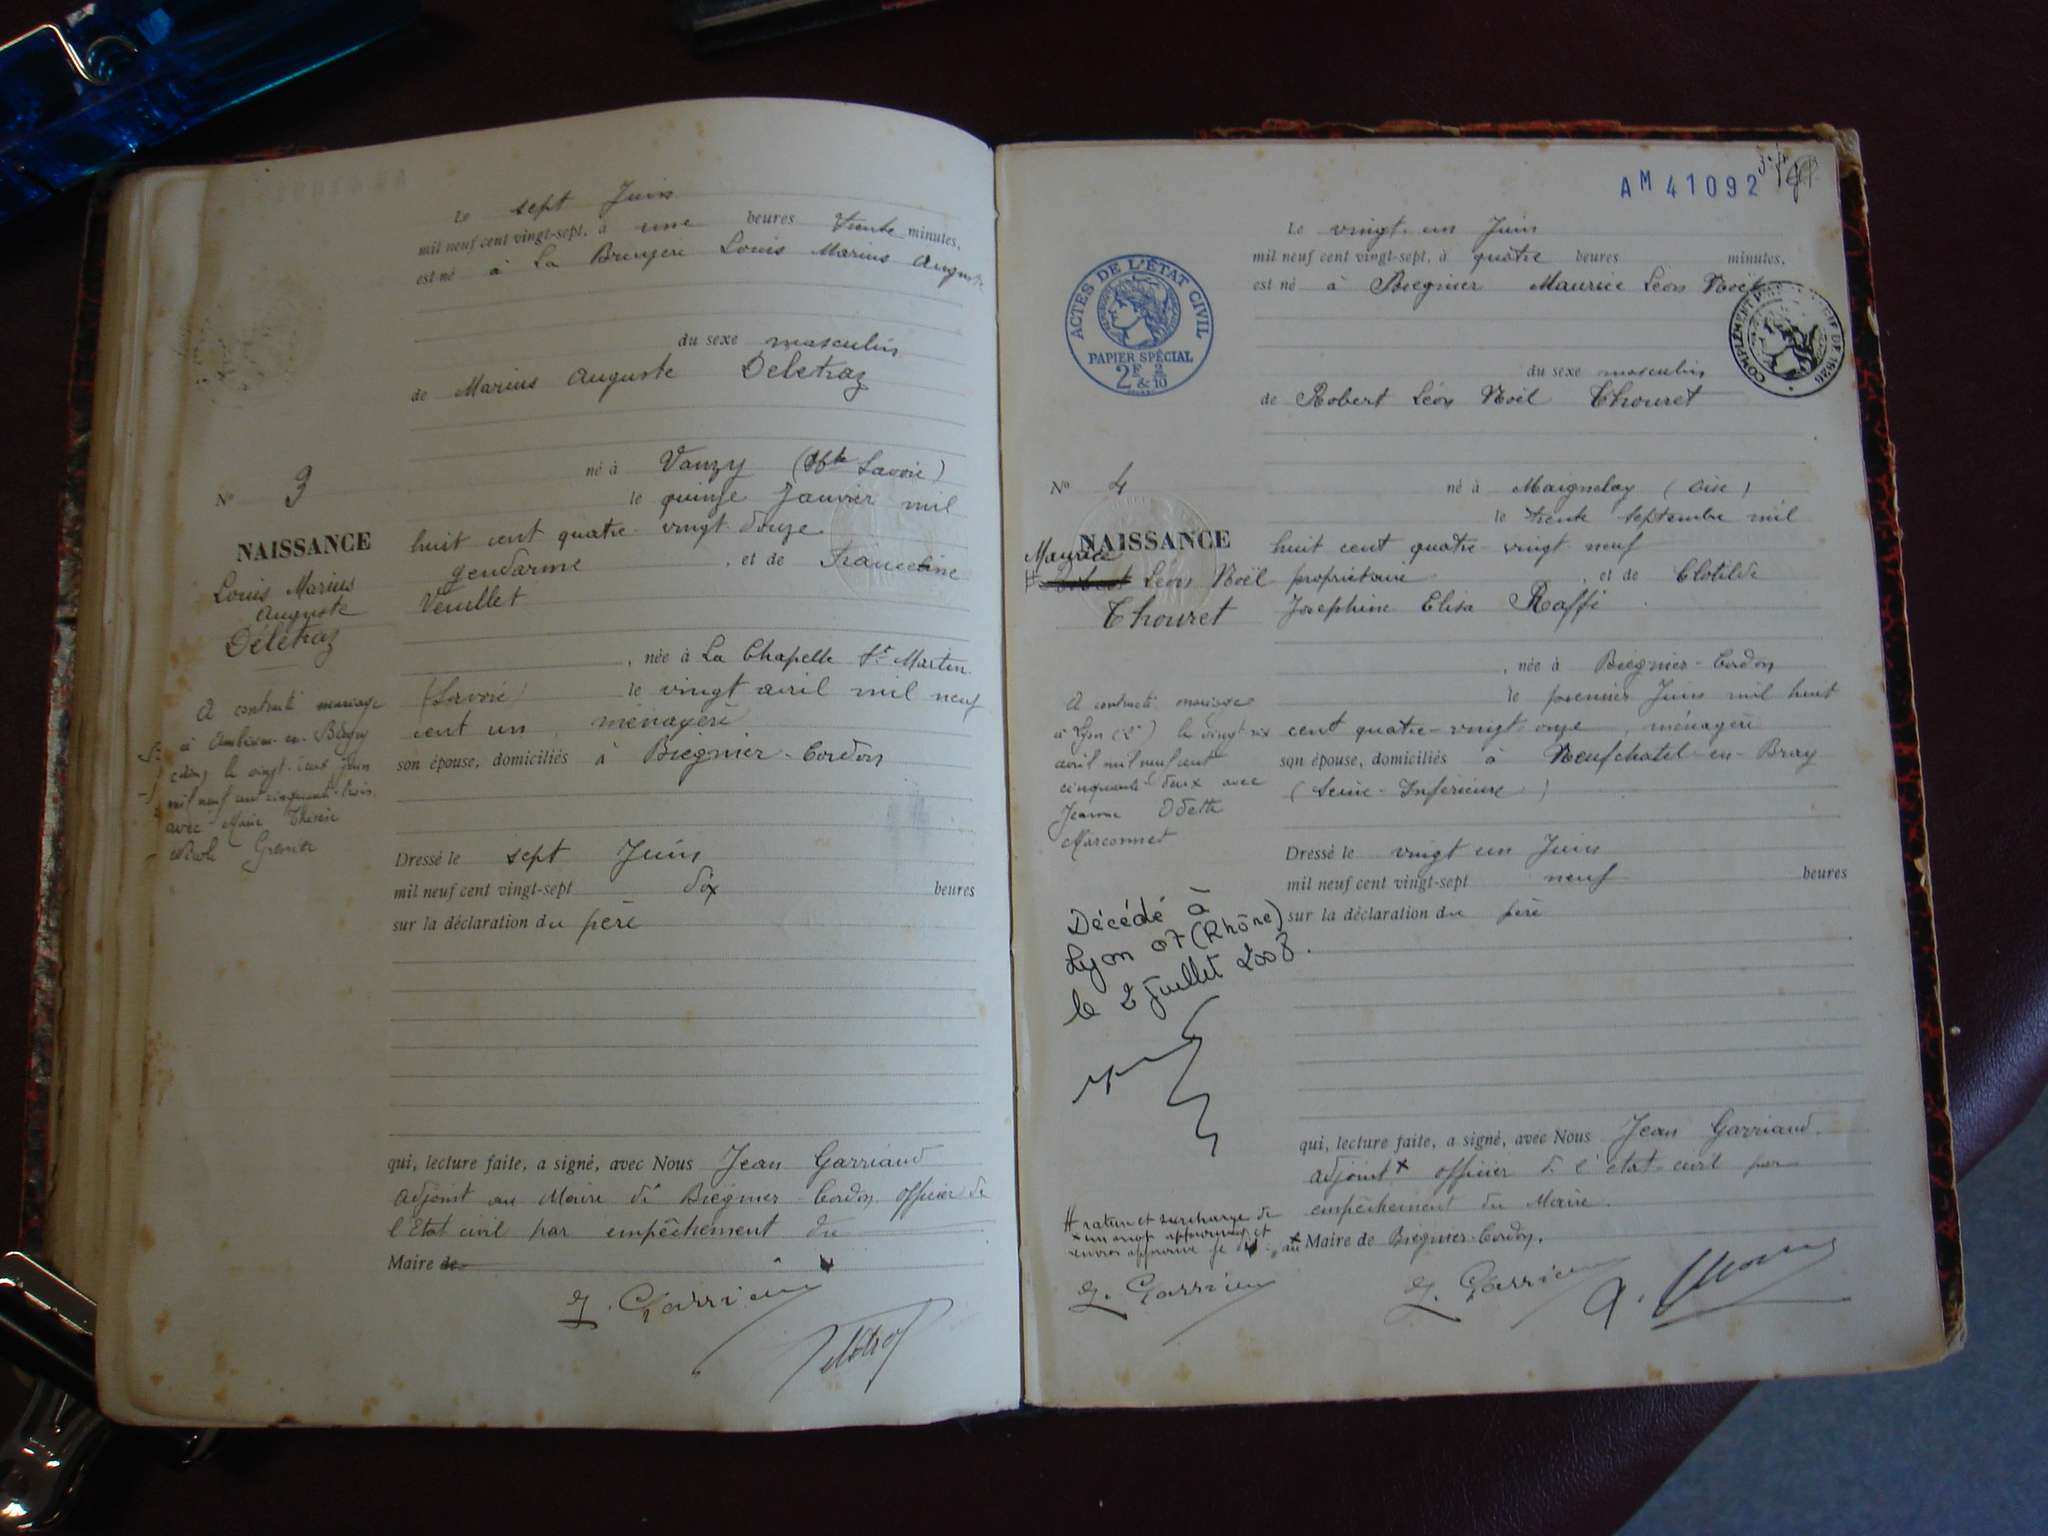 Le sept Juin
mil neuf cent vingt-sept, à une heures trente minutes,
est né à La Bruyère Louis Marius Auguste
du sexe masculin
de Marius Auguste Deletraz
né à Vanzy (Hte Savoie)
le quinze Janvier mil
huit cent quatre-vingt-douze
gendarme, et de Franceline
Veuillet
, née à La Chapelle St Martin
(Savoie) le vingt avril mil neuf
cent un, ménagère
son épouse, domiciliés à Brégnier-Cordon
Dressé le sept Juin
mil neuf cent vingt-sept dix heures
sur la déclaration du père
qui, lecture faite, a signé, avec Nous Jean Garriaud
adjoint au Maire de Brégnier-Cordon officier de
l'Etat civil par empêchement du
Maire de
Nº 3
NAISSANCE
Louis Marius
Auguste
Délétraz
A contracté mariage
à Ambérieu-en-Bugey
(Ain) le vingt Juin
mil neuf cent cinquante-trois
avec Marie Thérèse
AM 41092
Le vingt-un Juin
mil neuf cent vingt-sept, à quatre heures minutes,
est né à Brégnier Maurice Léon Noël
du sexe masculin
de Robert Léon Noël Thouret
né à Maignelay (Oise)
le trente septembre mil
huit cent quatre-vingt-neuf
propriétaire, et de Clotilde
Joséphine Elisa Raffi
, née à Brégnier-Cordon
le premier Juin mil huit
cent quatre-vingt-onze, ménagère
son épouse, domiciliés à Neufchatel-en-Bray
(Seine-Inférieure)
Dressé le vingt un Juin
mil neuf cent vingt-sept neuf heures
sur la déclaration du père
qui, lecture faite, a signé, avec Nous Jean Garriaud
adjoint x officier de l'état-civil par
empêchement du Maire
x au Maire de Brégnier-Cordon.
ACTES DE L'ÉTAT CIVIL
PAPIER SPÉCIAL
2F 2/10
&
COMPLÉMENT DE 1926
Nº 4
NAISSANCE
Maurice
# Léon Noël
Thouret
A contracté mariage
à Lyon (2e) le vingt-six
avril mil neuf cent
cinquante-deux avec
Jeanne Odette
Marconnet
Décédé à
Lyon 07 (Rhône)
le 2 juillet 2008.
# rature et surcharge de
un mot approuvés et
renvoi approuvé
J. Garriaud
J. Garriaud
J. Garriaud
Deletraz